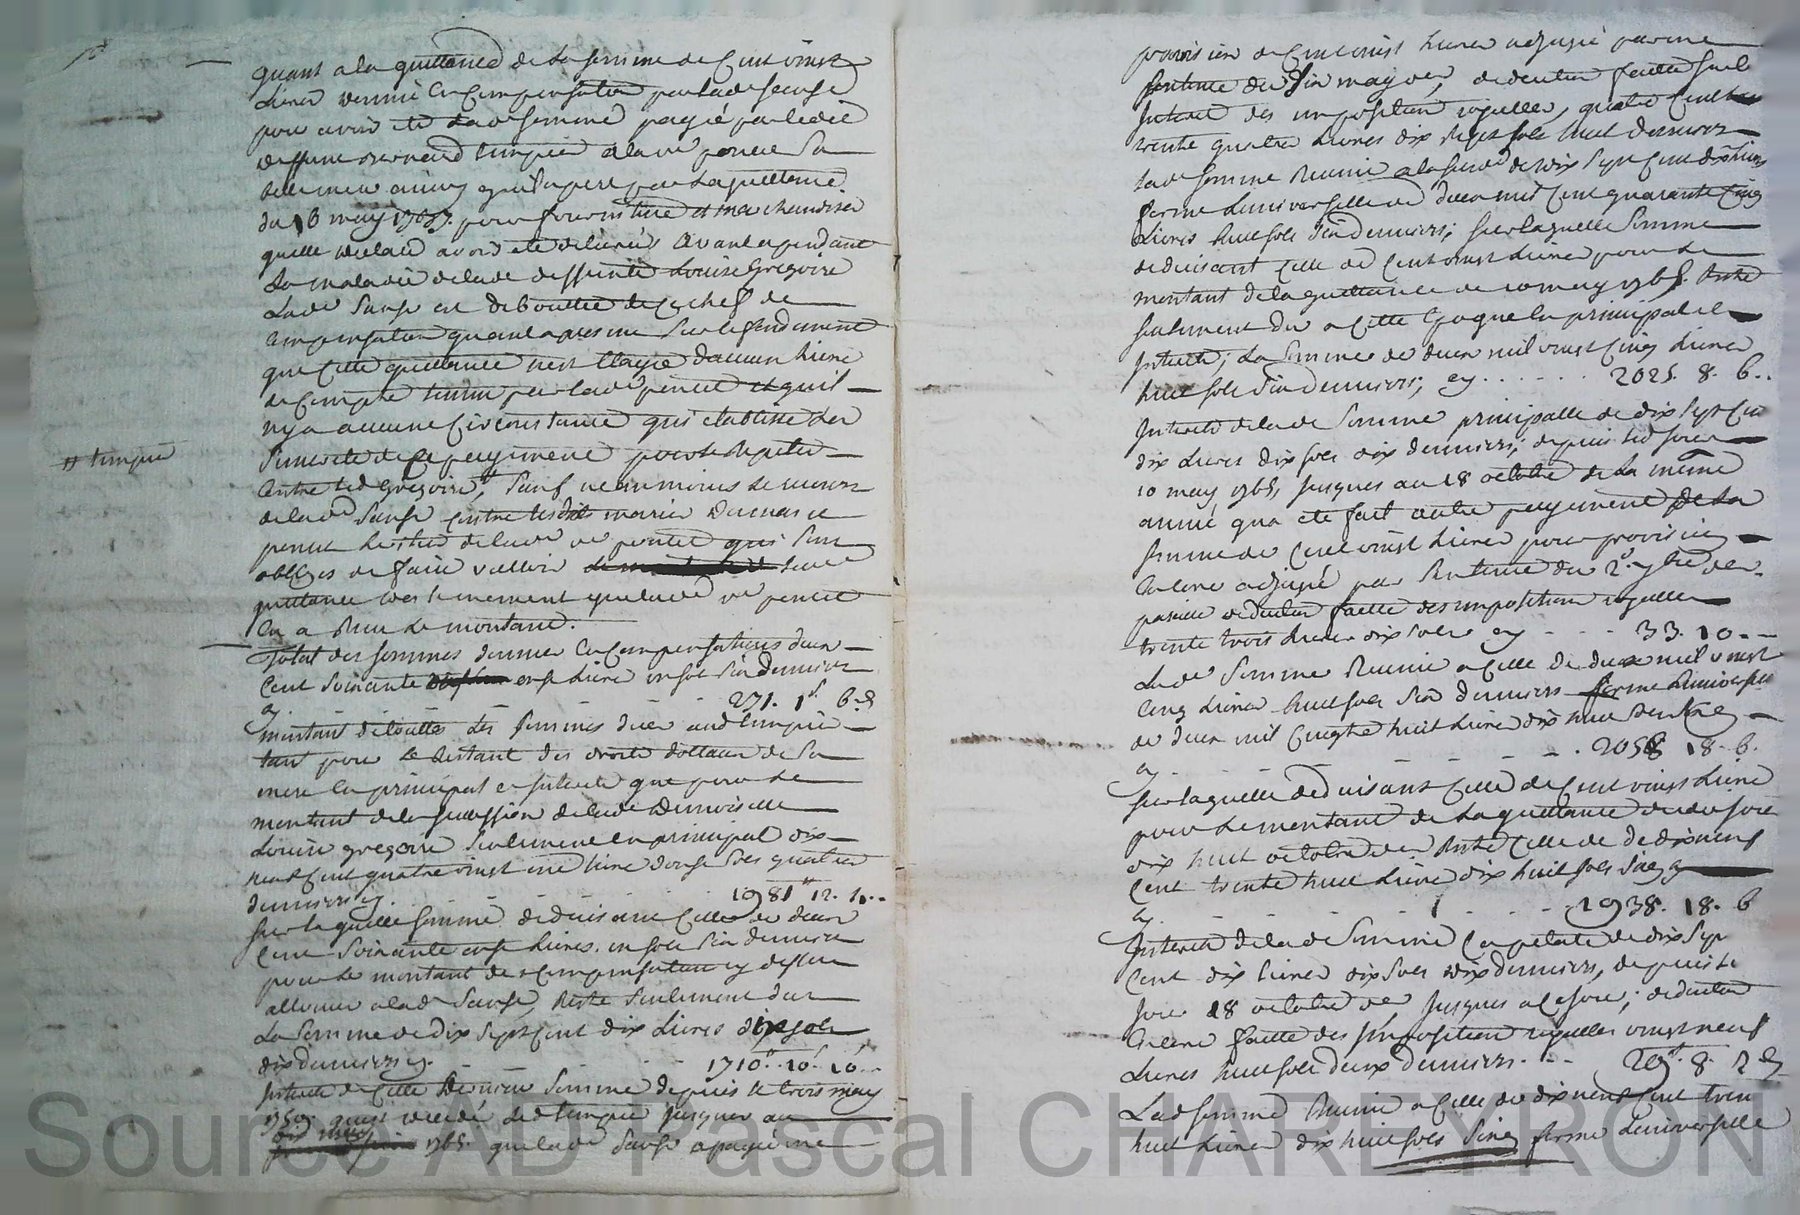 quant a la quittance de la somme de Cent vingt
Livres donnée en Compensation par lade Sause
pour avoir eté lade somme payée par ledit
a la de poncet Sa
belle mere ainsy qu'il apert par la quittance
du 16 may 1765. pour fourniture et marchandises
quelle declare avoir eté delivrés avant et pendant
La maladie de lade deffunte Louise Gregoire
Lade Sause est deboutée de ce chef de
Compensation quant a present sur le fondement
que Cette quittance n'est d'aucun Livre
de Compte tenu par lade poncet et qu'il
n'y a aucune Circonstance qui etablisse la
sincerité de Ce payement pour le repeter
# tinquié
Contre led Gregoire #, sauf neanmoins le recours
de lade Sause Contre lesdits
poncet de lade poncet qui sont
obliges de faire valloir leur
quittance que lade poncet
en a Reçu le montant.
Total des sommes données en Compensations deux
Cent soixante onse Livres un sol six deniers
ey 271. 1s 6 d
montant de toutes les sommes dues aud tinquié
tant pour le Restant des droits dottaux de sa
mere en principal et interets que pour le
montant de la succession de lade Demoiselle
Louise gregoire seulement en principal dix
neuf Cent quatre vingt une livre douse sols quatre
deniers ey. 1981 12. 4..
sur laquelle somme deduisant Celle de deux
Cent soixante onse Livres un sols six deniers
pour le montant des Compensations cy dessus
allouées a lade Sause, Reste seulement due
La somme de Dix sept Cent dix Livres dix sols
dix deniers ey. 1710. 10. 10..
Interets de Cette Derniere somme depuis le trois may
1759. decedé led tinquié jusques au
dix may 1765. que lade Sause a payé une
provision de Cent vingt Livres adjugée par une
sentence du six may , deduction faitte sur l
Interet des imposition royalles, quatre Cent
trente quatre Livres dix sept sols huit deniers
lade somme Reunie a la susde de dix sept Cent dix livres
forme L'universelle de deux mil Cent quarante Cinq
Livres huit sols six deniers; sur laquelle somme
deduisant Celle de Cent vingt Livres pour le
montant de la quittance de 10 may 1765. Reste
seulement du a Cette Epoque en principal et
Interets; La somme de deux mil vingt Cinq Livres
huit sols six deniers; ey . . . . . . 2025. 8. 6..
Interets de lade somme principalle de dix sept Cent
dix Livres dix sols dix deniers; depuis led jour
10 may 1765, jusques au 18 octobre de la même
année qua eté fait autre payement de la
somme de Cent vingt Livres pour provision
encore adjugée par sentence du 2e 7bre
pareille deduction faitte des imposition royalles
trente trois Livres dix sols ey 33. 10.
Lade somme Reunie a Celle de deux mil vingt
Cinq Livres huit sols six deniers forme L'universelle
de deux mil Cinqte huit Livres dix huit sols six
ey 2058 18. 6.
sur laquelle deduisant Celle de Cent vingt Livres
pour le montant de La quittance dud jour
dix huit octobre Reste Celle de de dix neuf
Cent trente huit Livres dix huit sols six
ey. 1938. 18. 6
Interets de lade somme Capitale de dix sept
Cent dix Livres dix sols dix deniers, depuis le
jour 18 octobre jusques a Ce jour; deduction
encore faitte des Imposition royalles vingt neuf
Livres huit sols deux deniers. 29. 8. 2 d
Lade somme Reunie a Celle de dix neuf Cent trente
huit Livres dix huit sols six forme L'universelle
Source AD Pascal CHAREYRON